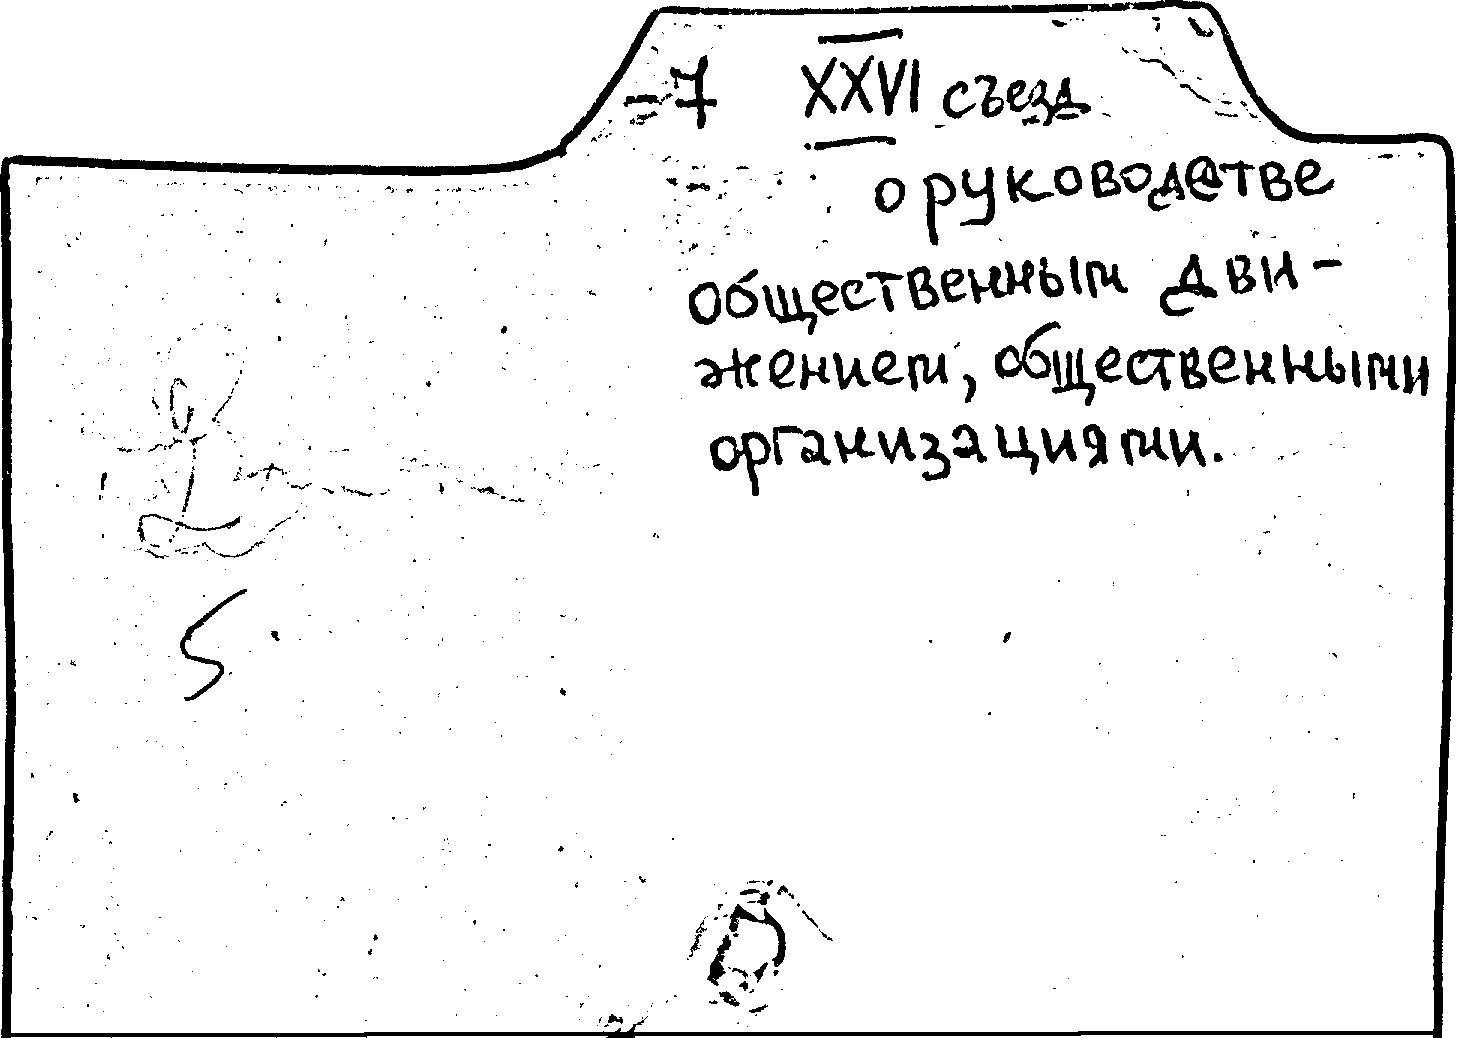 -7 XXVI съезд
о руководстве
общественным дви-
жением, общественными
организациями.
5